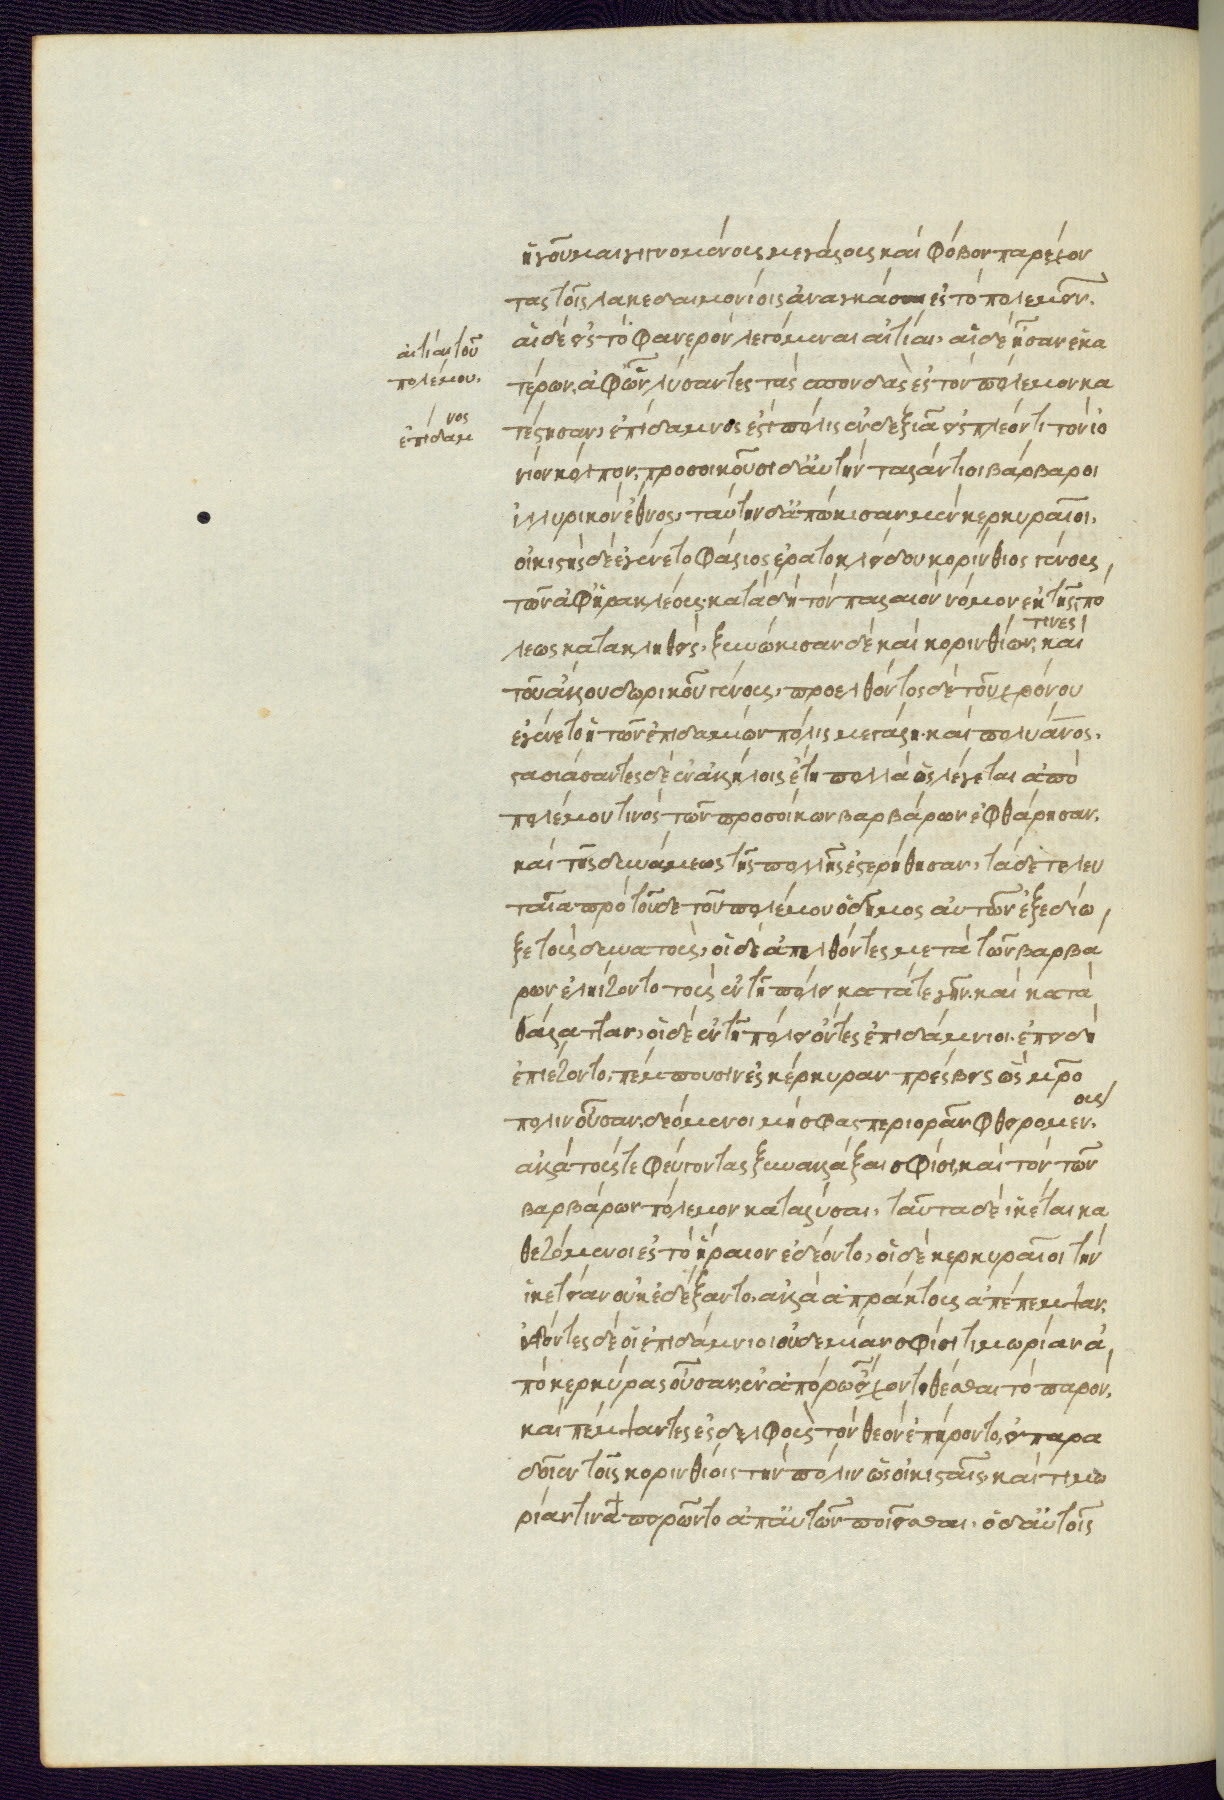 ἡγοῦμαι γιγνομένους μεγάλους καὶ φόβον παρέχον
τας τοῖς λακεδαιμονίοις ἀναγκάσαι ἐς τὸ πολεμεῖν.
αἱ δὲ ἐς τὸ φανερὸν λεγόμεναι αἰτίαι, αἵδε ἦσαν ἑκα
αἰτίαι τοῦ
πολέμου.
τέρων, ἀφ' ὧν λύσαντες τὰς σπονδὰς ἐς τὸν πόλεμον κα
ἐπίδαμνος
τέστησαν, ἐπίδαμνος ἐστὶ πόλις ἐν δεξιᾷ ἐσπλέοντι τὸν ἰό
νιον κόλπον, προσοικοῦσι δ' αὐτὴν ταυλάντιοι βάρβαροι
ἰλλυρικὸν ἔθνος, ταύτην ἀπῴκισαν μὲν κερκυραῖοι.
οἰκιστὴς δὲ ἐγένετο φάλιος ἐρατοκλείδου κορίνθιος γένους,
τῶν ἀφ' ἡρακλέους, κατὰ δὴ τὸν παλαιὸν νόμον ἐκ τῆς μητροπό
λεως κατακληθείς, ξυνῴκισαν δὲ καὶ κορινθίων τινὲς καὶ
τοῦ ἄλλου δωρικοῦ γένους, προελθόντος δὲ τοῦ χρόνου
ἐγένετο ἡ τῶν ἐπιδαμνίων πόλις μεγάλη καὶ πολυάνος.
στασιάσαντες δὲ ἐν ἀλλήλοις ἔτη πολλὰ ὡς λέγεται ἀπὸ
πολέμου τινὸς τῶν προσοίκων βαρβάρων ἐφθάρησαν.
καὶ τῆς δυνάμεως τῆς πολλῆς ἐστερήθησαν, τὰ δὲ τελευ
ταῖα πρὸ τοῦδε τοῦ πολέμου ὁ δῆμος αὐτῶν ἐξεδίω
ξε τοὺς δυνατούς, οἱ δὲ ἀπελθόντες μετὰ τῶν βαρβά
ρων ἐληίζοντο τοὺς ἐν τῇ πόλει κατά τε γῆν καὶ κατὰ
θάλατταν, οἱ δὲ ἐν τῇ πόλει ὄντες ἐπιδάμνιοι ἐπειδὴ
ἐπιέζοντο, πέμπουσιν ἐς κέρκυραν πρέσβεις ὡς μρο
πολιν οὖσαν, δεόμενοι μὴ σφᾶς περιορᾶν φθειρομένους
ἀλλὰ τούς τε φεύγοντας ξυναλλάξαι σφίσι, καὶ τὸν τῶν
βαρβάρων πόλεμον καταλῦσαι, ταῦτα δὲ ἱκέται κα
θεζόμενοι ἐς τὸ ἥραιον ἐδέοντο, οἱ δὲ κερκυραῖοι τὴν
ἱκετείαν οὐκ ἐδέξαντο, ἀλλὰ ἀπράκτους ἀπέπεμψαν,
γνόντες δὲ οἱ ἐπιδάμνιοι οὐδεμίαν σφίσι τιμωρίαν ἀ
πὸ κερκύρας οὖσαν, ἐν ἀπόρῳ εἴχοντο θέσθαι τὸ παρόν,
καὶ πέμψαντες ἐς δελφοὺς τὸν θεὸν ἐπήροντο, εἰ παρα
δοῖεν τοῖς κορινθίοις τὴν πόλιν ὡς οἰκισταῖς, καὶ τιμω
ρίαν τινὰ πειρῷντο ἀπ' αὐτῶν ποιεῖσθαι, ὁ δ' αὐτοῖς